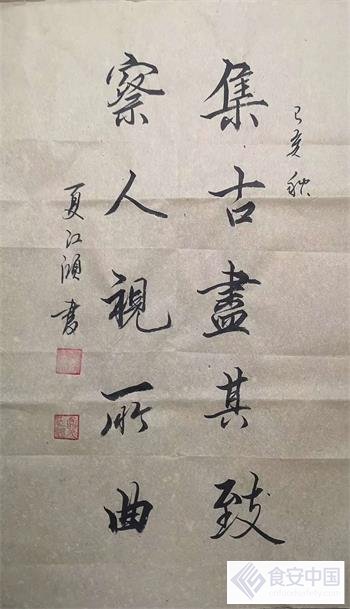 己亥秋
集古盡其致
察人視所曲
夏江書
食安中国
cnfoodsafety.com